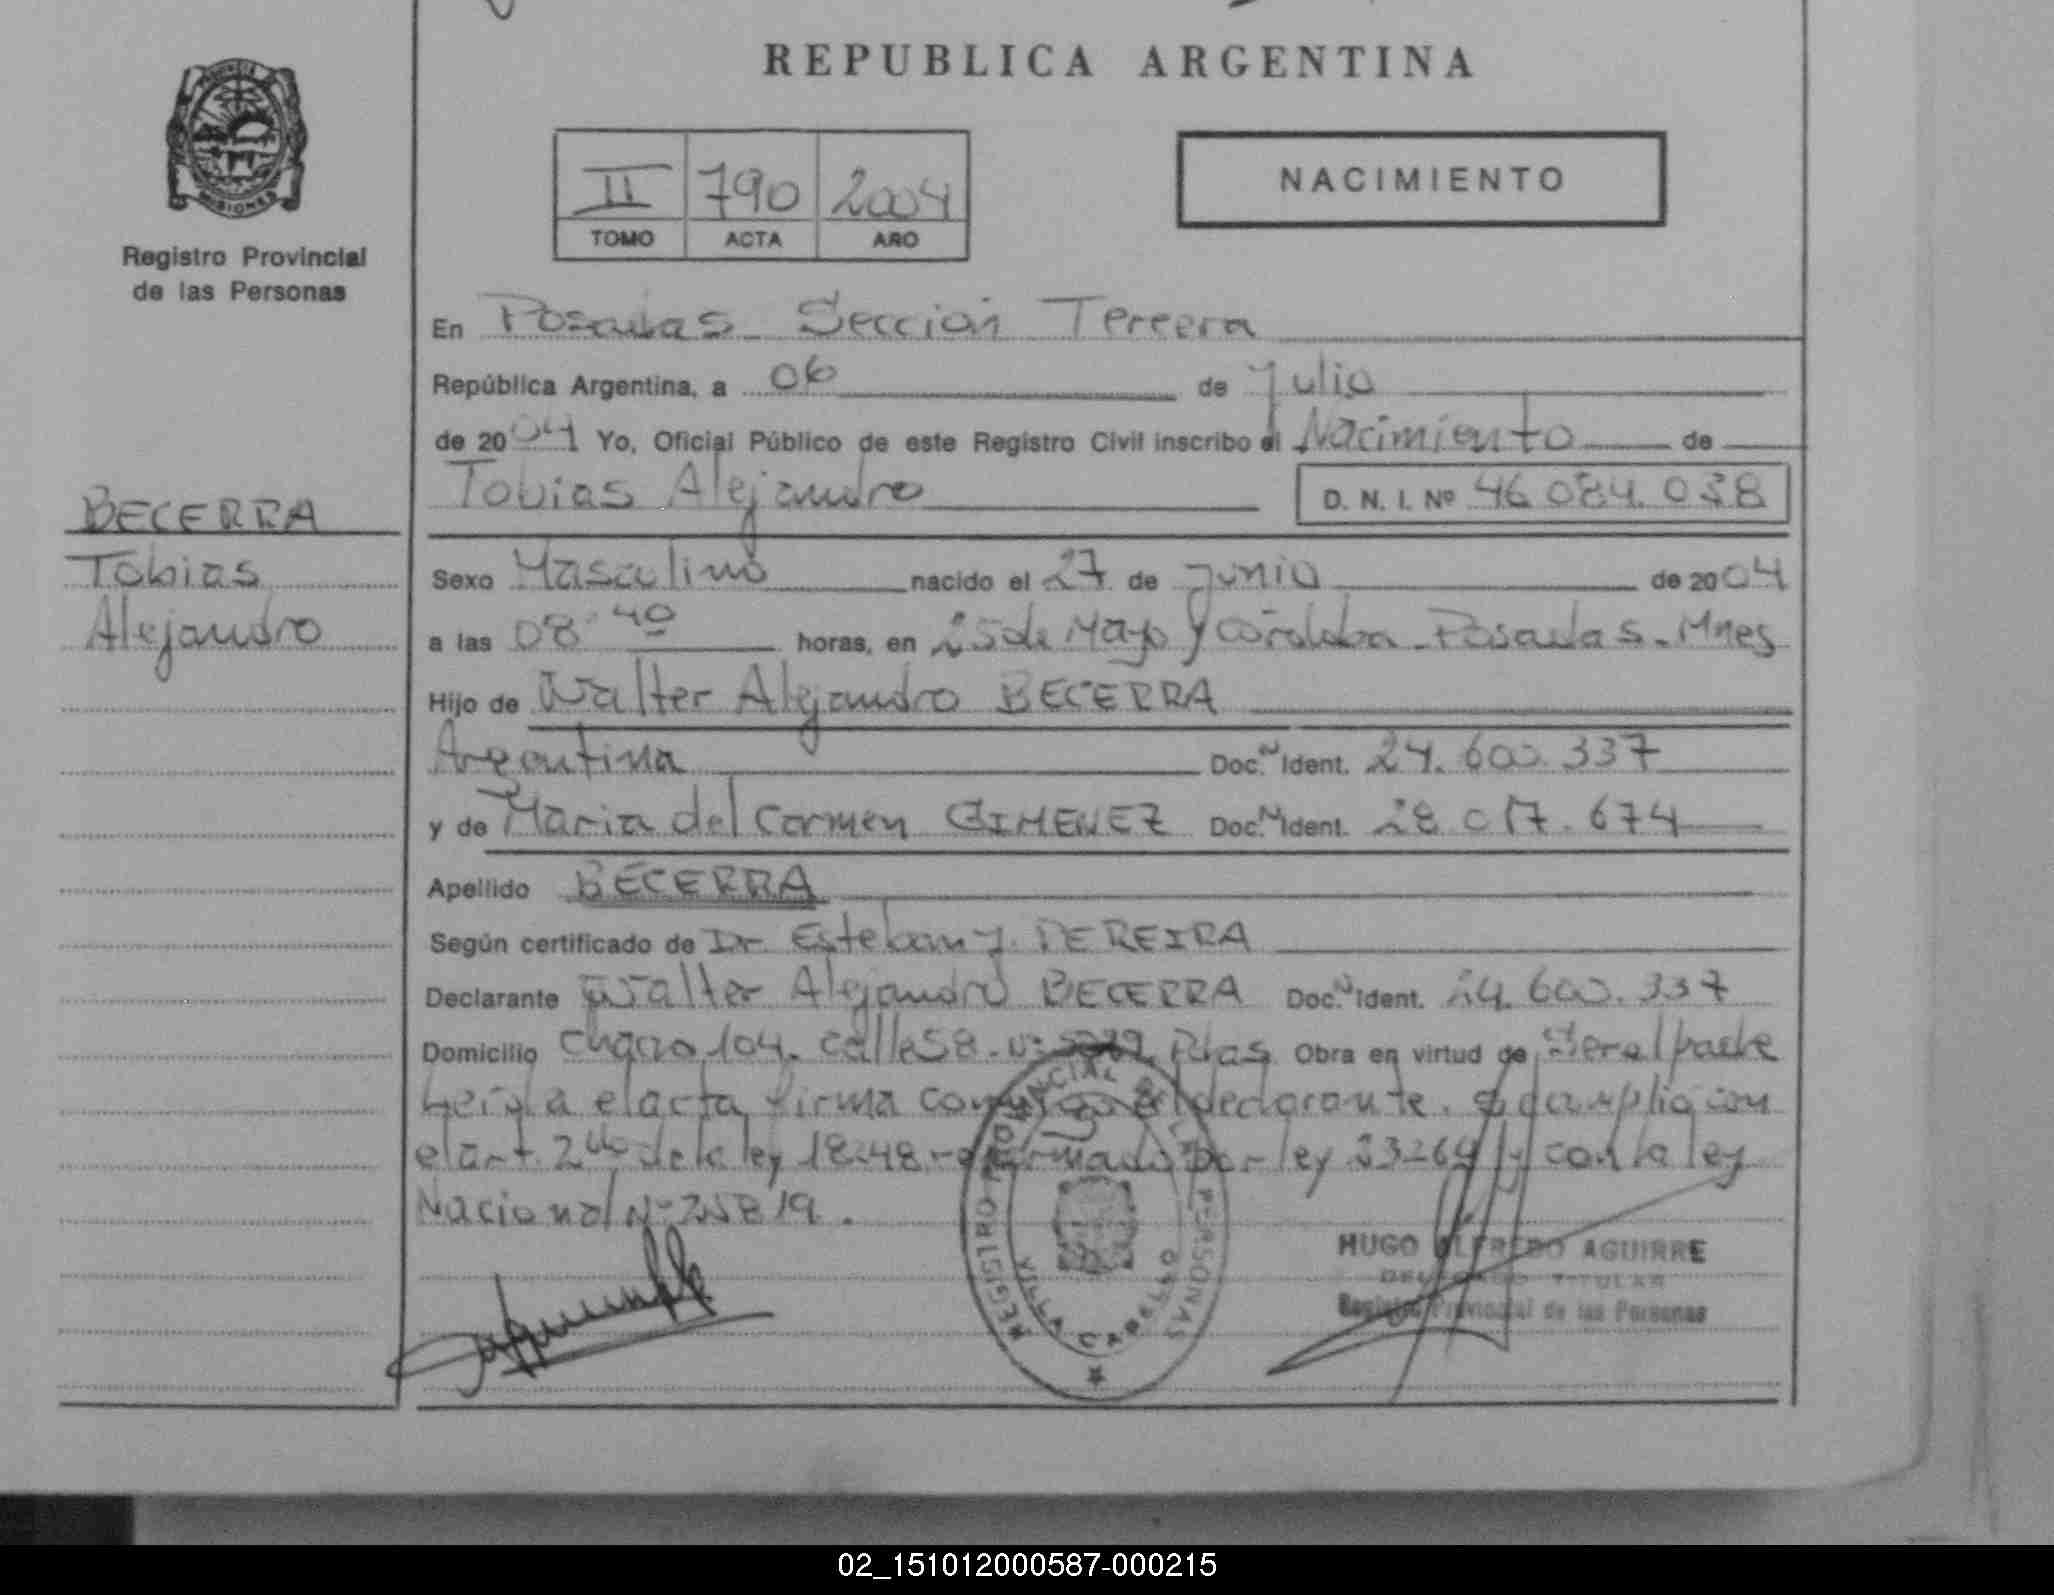 REPUBLICA ARGENTINA
PROVINCIA DE
MISIONES
Registro Provincial
de las Personas
II 790 2004
TOMO ACTA AÑO
NACIMIENTO
En Posadas Sección Tercera
República Argentina, a 06 de Julio
de 2004 Yo, Oficial Público de este Registro Civil inscribo el Nacimiento de
Tobias Alejandro D. N. I. Nº 46.084.038
BECERRA
Tobias
Alejandro
Sexo Masculino nacido el 27 de Junio de 2004
a las 08:40 horas, en 25 de Mayo y Córdoba - Posadas - Mnes
Hijo de Walter Alejandro BECERRA
Argentina Doc. N Ident. 24.600.337
y de Maria del Carmen GIMENEZ Doc. N Ident. 28.017.674
Apellido BECERRA
Según certificado de Dr. Esteban J. PEREIRA
Declarante Walter Alejandro BECERRA Doc. N Ident. 24.600.337
Domicilio Chacra 104. calle 58. Nº Pdas. Obra en virtud de
Leída el acta, firma el declarante. se cumplió con
el art. 2do de la ley 18248 reformado por ley 23264 y con la ley
Nacional Nº
REGISTRO PROVINCIAL DE LAS PERSONAS
VILLA CABELLO
HUGO ALFREDO AGUIRRE
DELEGADO TITULAR
Registro Provincial de las Personas
02_151012000587-000215